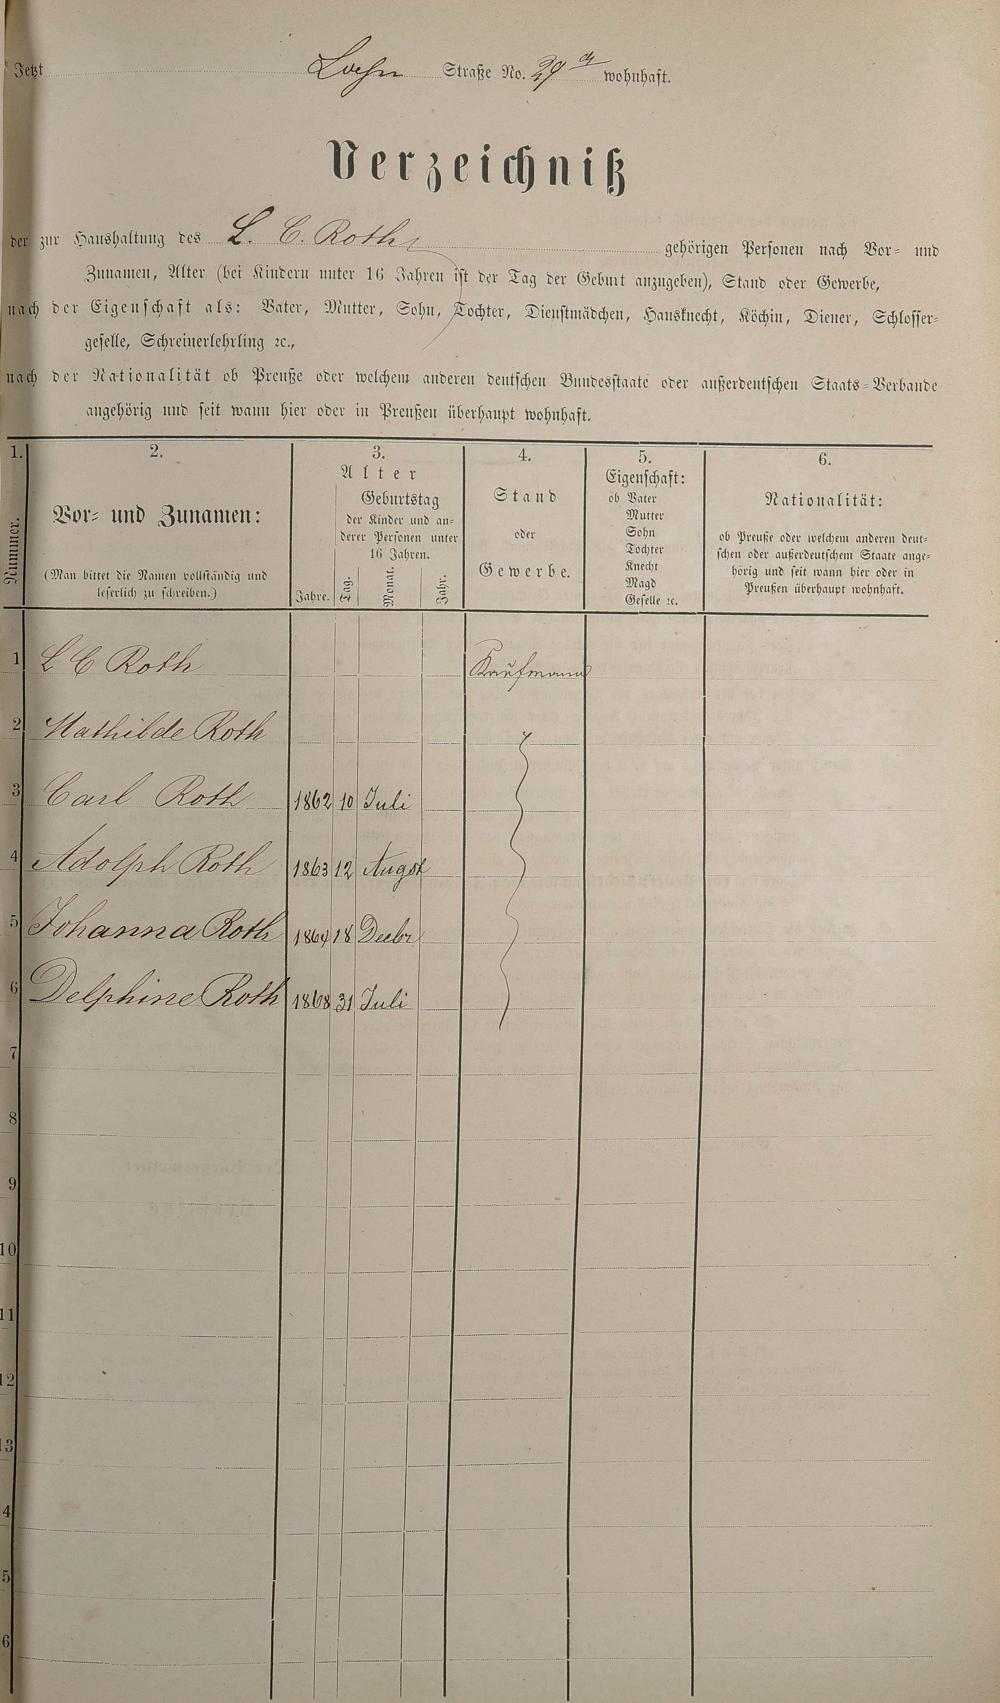 Jetzt Loehr Straße No. 29 a wohnhaft.
Verzeichniß
der zur Haushaltung des L. C. Roth gehörigen Personen nach Vor- und
Zunamen, Alter (bei Kindern unter 16 Jahren ist der Tag der Geburt anzugeben), Stand oder Gewerbe,
nach der Eigenschaft als: Vater, Mutter, Sohn, Tochter, Dienstmädchen, Hausknecht, Köchin, Diener, Schlosser-
geselle, Schreinerlehrling ꝛc.,
nach der Nationalität ob Preuße oder welchem anderen deutschen Bundesstaate oder außerdeutschen Staats-Verbande
angehörig und seit wann hier oder in Preußen überhaupt wohnhaft.
1.
Nummer.
2.
Vor- und Zunamen:
(Man bittet die Namen vollständig und
leserlich zu schreiben.)
3.
Alter
Jahre.
Geburtstag
der Kinder und an-
derer Personen unter
16 Jahren.
Tag. Monat. Jahr.
4.
Stand
oder
Gewerbe.
5.
Eigenschaft:
ob Vater
Mutter
Sohn
Tochter
Knecht
Magd
Geselle ꝛc.
6.
Nationalität:
ob Preuße oder welchem anderen deut-
schen oder außerdeutschem Staate ange-
hörig und seit wann hier oder in
Preußen überhaupt wohnhaft.
1 L C Roth Kaufmann
2 Mathilde Roth
3 Carl Roth 1862 10 Juli
4 Adolph Roth 1863 12 Augst
5 Johanna Roth 1864 18 Decbr
6 Delphine Roth 1868 31 Juli
7
8
9
10
11
12
13
4
5
6